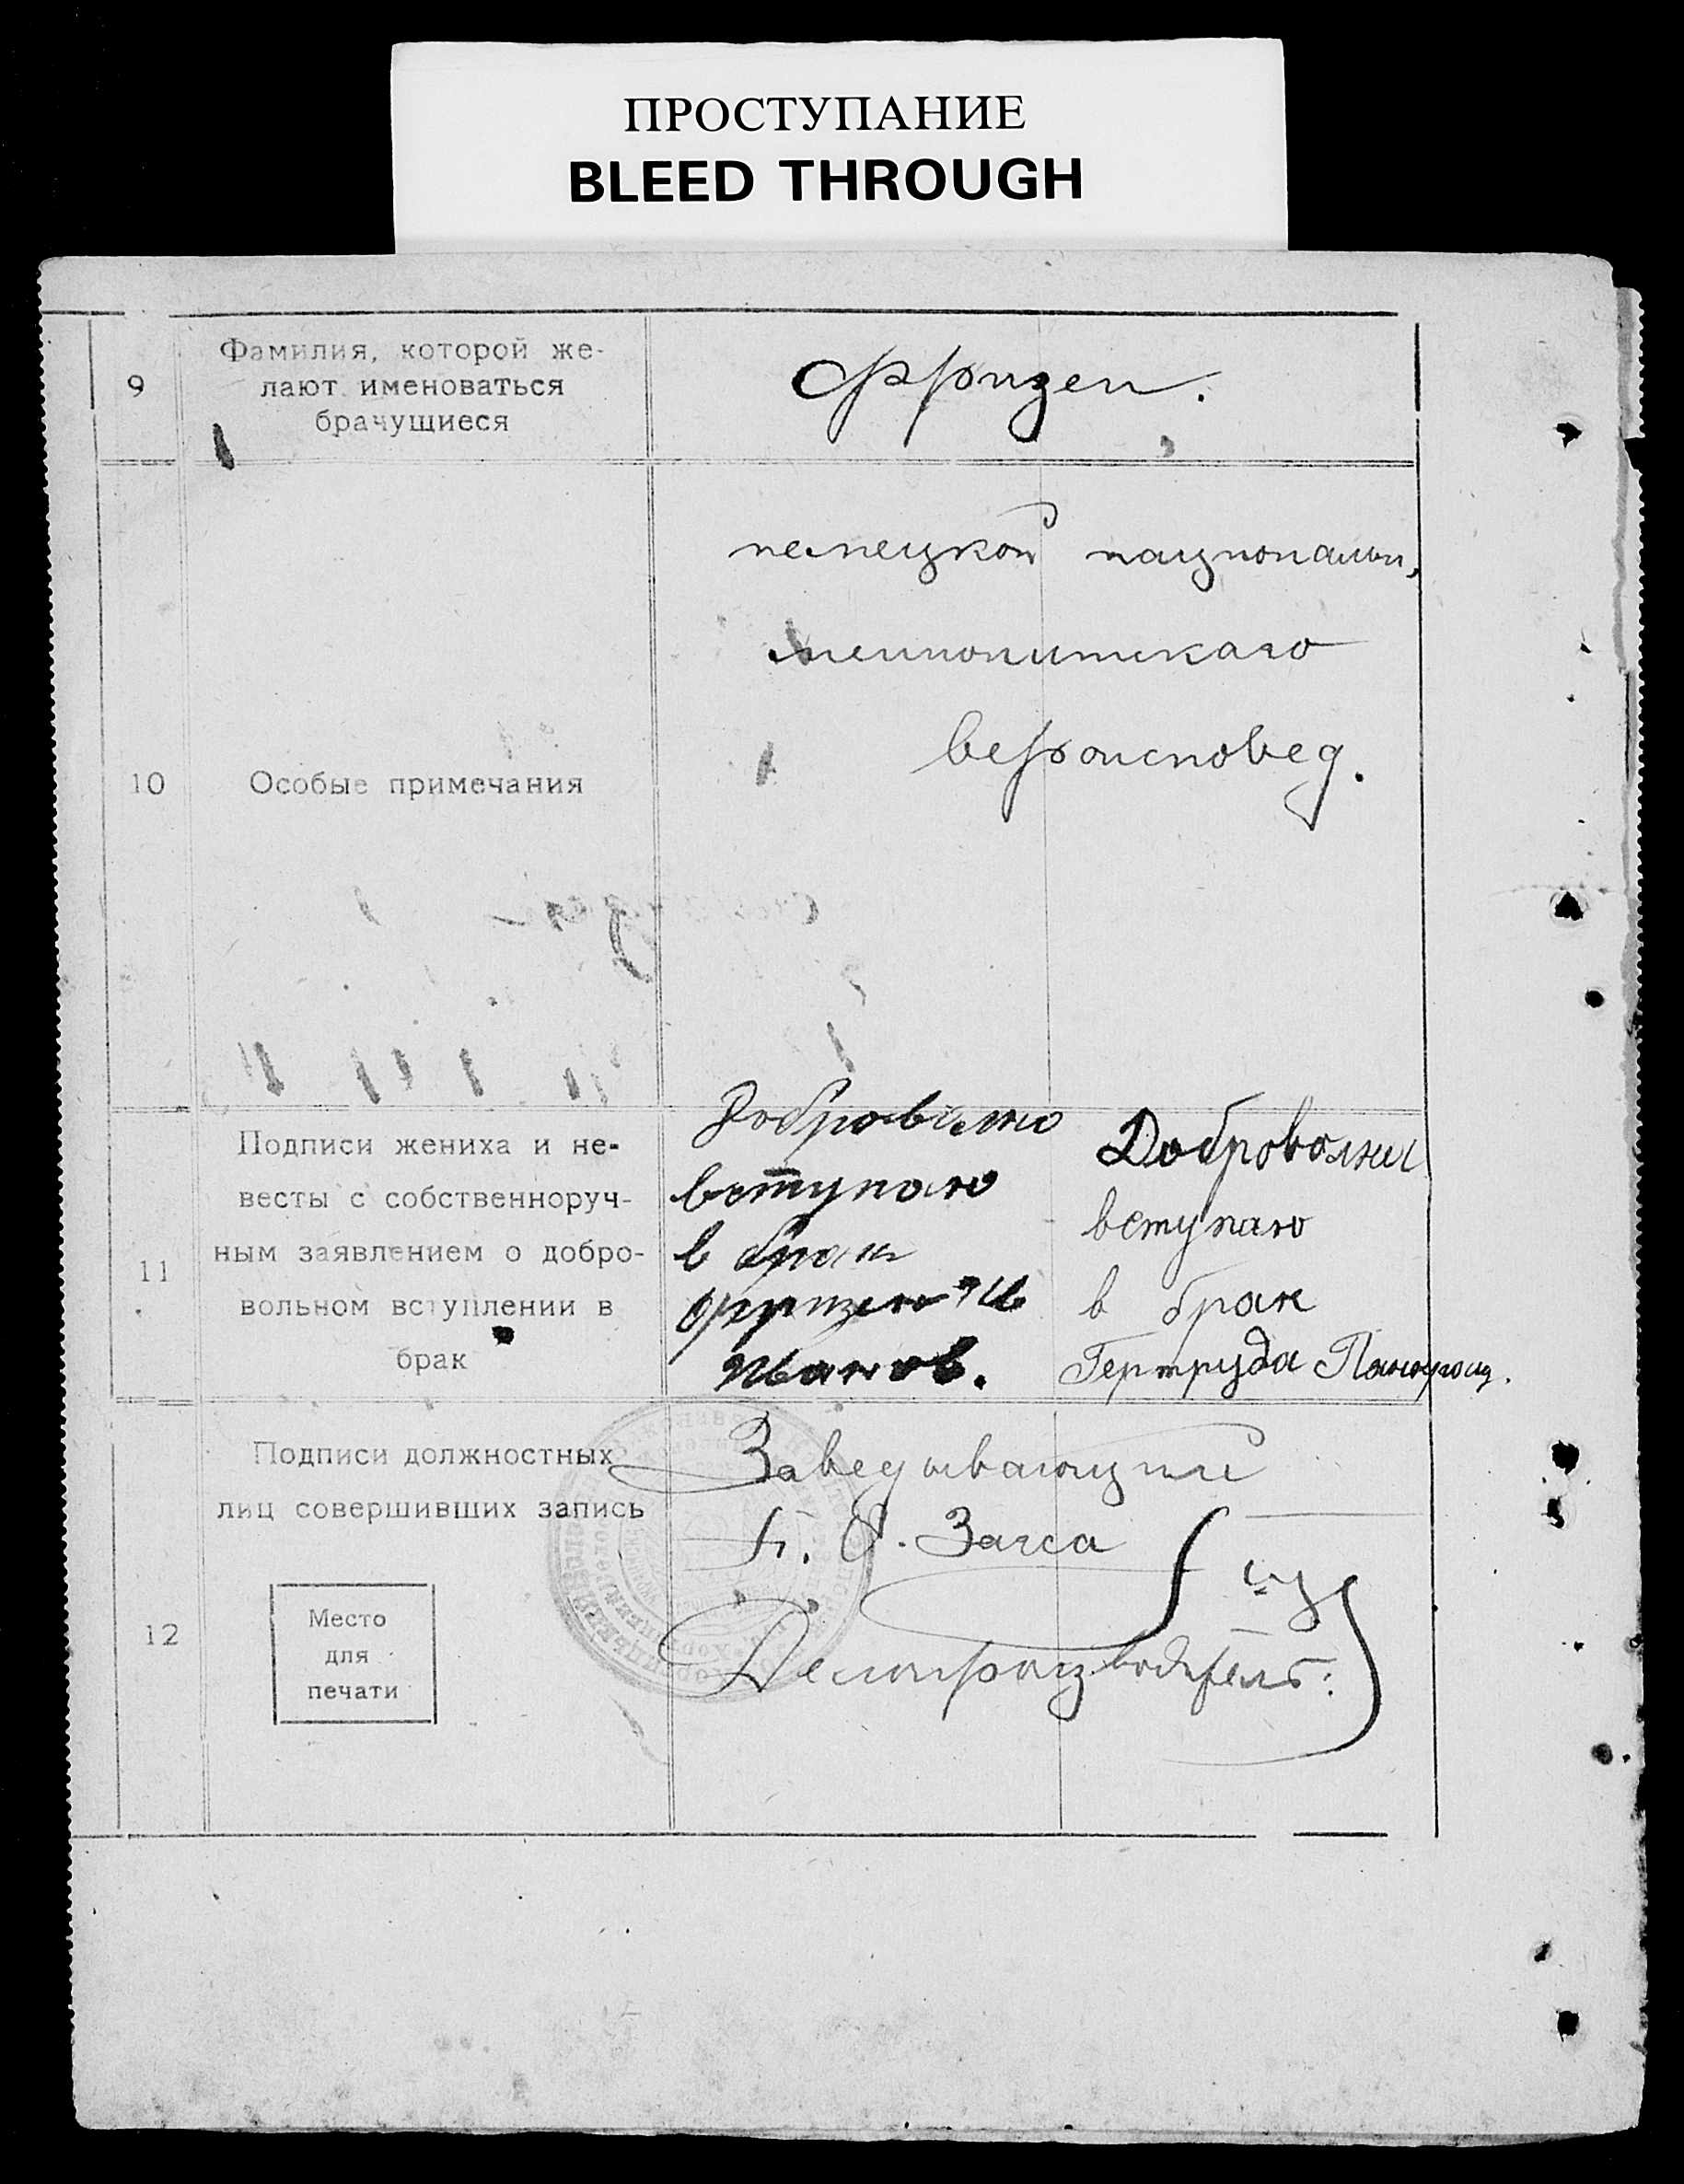 ПРОСТУПАНИЕ
BLEED THROUGH
9
Фамилия, которой же-
лают именоваться
брачущиеся
Фризен.
10
Особые примечания
немецкой национальн,
меннонитскаго
вероисповед.
11
Подписи жениха и не-
весты с собственноруч-
ным заявлением о добро-
вольном вступлении в
брак
вступаю
в брак
Фризен Ив
Иванов.
вступаю
в брак
Гертруда
12
Подписи должностных
лиц совершивших запись
Место
для
печати
Заведывающий
П. О. Загса
Делопроизводитель: